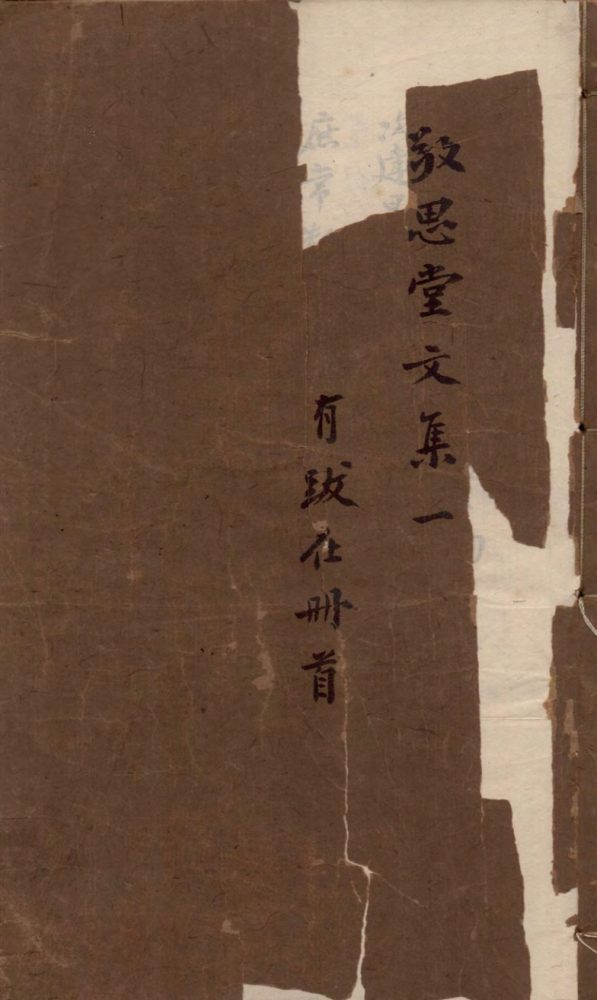 敬思堂文集一
有跋在册首